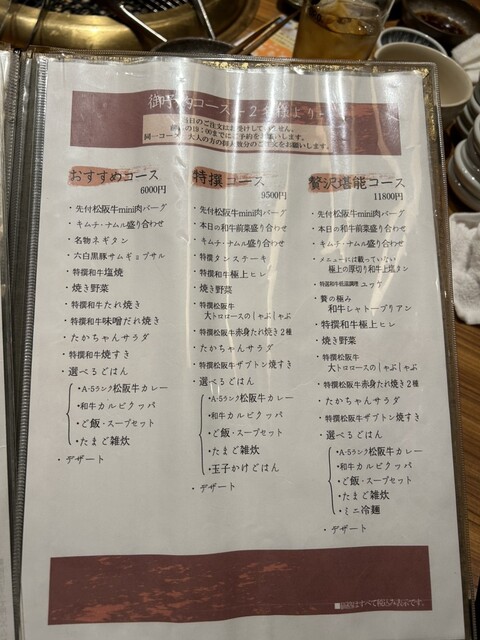 御予約コース-2名様より-
当日のご注文はお受けしていません。
前日の19:00までにご予約をお願いします。
同一コース、大人の方の御人数分のご注文をお願いします。
おすすめコース
6000円
・先付松阪牛mini肉バーグ
・キムチ・ナムル盛り合わせ
・名物ネギタン
・六白黒豚サムギョプサル
・特撰和牛塩焼
・焼き野菜
・特撰和牛たれ焼き
・特撰和牛味噌だれ焼き
・たかちゃんサラダ
・特撰和牛焼すき
・選べるごはん
・A-5ランク松阪牛カレー
・和牛カルビクッパ
・ご飯・スープセット
・たまご雑炊
・デザート
特撰コース
9500円
・先付松阪牛mini肉バーグ
・本日の和牛前菜盛り合わせ
・キムチ・ナムル盛り合わせ
・特撰タンステーキ
・特撰和牛極上ヒレ
・焼き野菜
・特撰松阪牛
大トロロースのしゃぶしゃぶ
・特撰松阪牛赤身たれ焼き2種
・たかちゃんサラダ
・特撰松阪牛ザブトン焼すき
・選べるごはん
・A-5ランク松阪牛カレー
・和牛カルビクッパ
・ご飯・スープセット
・たまご雑炊
・玉子かけごはん
・デザート
贅沢堪能コース
11800円
・先付松阪牛mini肉バーグ
・本日の和牛前菜盛り合わせ
・キムチ・ナムル盛り合わせ
・メニューには載っていない
極上の厚切り和牛上塩タン
・特撰和牛低温調理 ユッケ
・贅の極み
和牛シャトーブリアン
・特撰和牛極上ヒレ
・焼き野菜
・特撰松阪牛
大トロロースのしゃぶしゃぶ
・特撰松阪牛赤身たれ焼き2種
・たかちゃんサラダ
・特撰松阪牛ザブトン焼すき
・選べるごはん
・A-5ランク松阪牛カレー
・和牛カルビクッパ
・ご飯・スープセット
・たまご雑炊
・ミニ冷麺
・デザート
■価格はすべて税込み表示です。